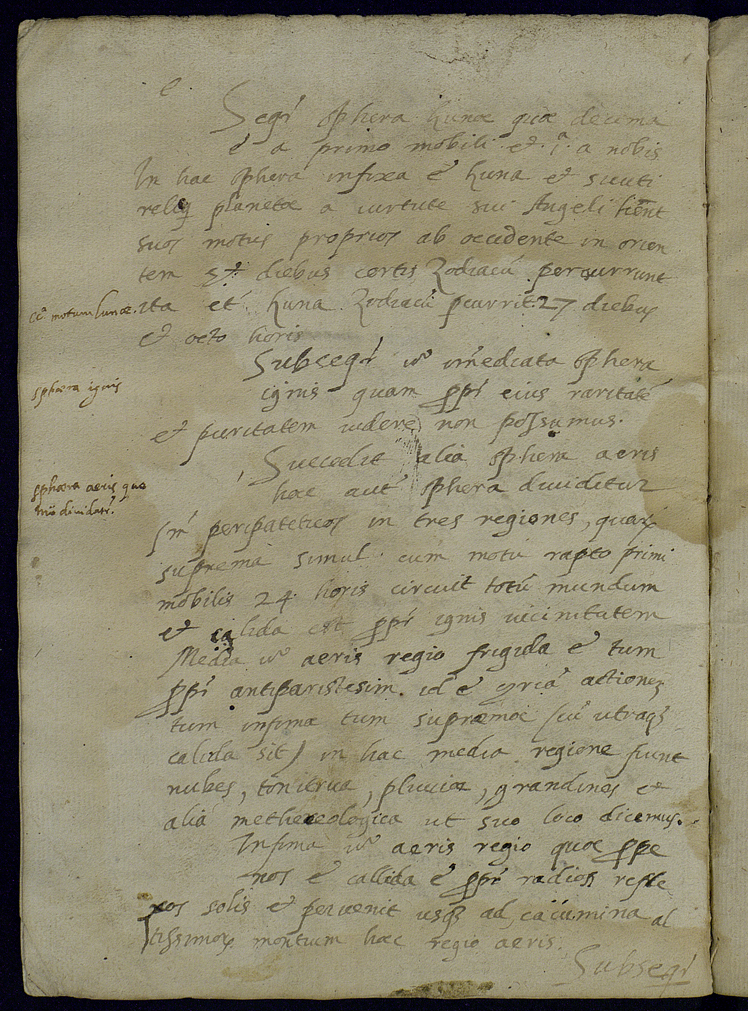 Segr̃ sphera Lunæ quæ decima
ẽ a primo mobili et .1.ª a nobis
In hac sphera infixa ẽ Luna et sicuti
reliq̃ planetæ a virtute sui Angeli
suos motus proprios ab occidente in orien
tem diebus certis Zodiacũ percurrunt
cc.ª motum lunæ.
ita et Luna Zodiacũ pcurrit 27 diebus
et octo horis
Subsegr̃ v.º ĩmediata sphera
sphæra ignis
ignis quam pp̃r eius raritatẽ
et puritatem videre non possumus.
Succedit alia sphera aeris
sphæra aeris quo
mõ dividatr̃.
hæc aut̃ sphera dividitur
sm̃ peripateticos in tres regiones, quar̃
suprema simul cum motu rapto primi
mobilis 24 horis circuit totũ mundum
et calida est pp̃r ignis vicinitatem
Media v.º aeris regio frigida ẽ tum
pp̃r antiparistesim id ẽ actiones
tum infimæ tum supræmæ (cũ utraq̃
calida sit) in hac media regione fiunt
nubes, tonitrua, pluviæ, grandines et
alia metheeologica ut suo loco dicemus.
Infima v.º aeris regio quæ pp̃e
nos ẽ callida ẽ pp̃r radios refle-
xos solis et pervenit usq̃ ad cacumina al
tissimor̃ montium hæc regio aeris.
Subsegr̃